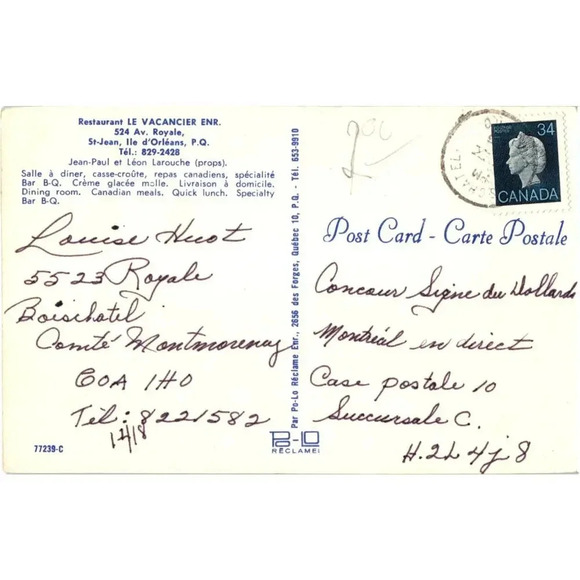 Restaurant LE VACANCIER ENR.
524 Av. Royale,
St-Jean, Ile d'Orléans, P.Q.
Tél.: 829-2428
Jean-Paul et Léon Larouche (props).
Salle à dîner, casse-croûte, repas canadiens, spécialité
Bar B-Q. Crème glacée molle. Livraison à domicile.
Dining room. Canadian meals. Quick lunch. Specialty
Bar B-Q.
Louise Huot
5523 Royale
Boischatel
Comté Montmorency
G0A 1H0
Tél: 8221582
77239-C
Par Po-Lo Réclame Enr., 2656 des Forges, Québec 10, P.Q. - Tél. 653-9910
PO-LO
RÉCLAME
34
CANADA
Post Card - Carte Postale
Concour Signe du Dollards
Montréal en direct
Case postale 10
Succursale C.
H.2L 4j8